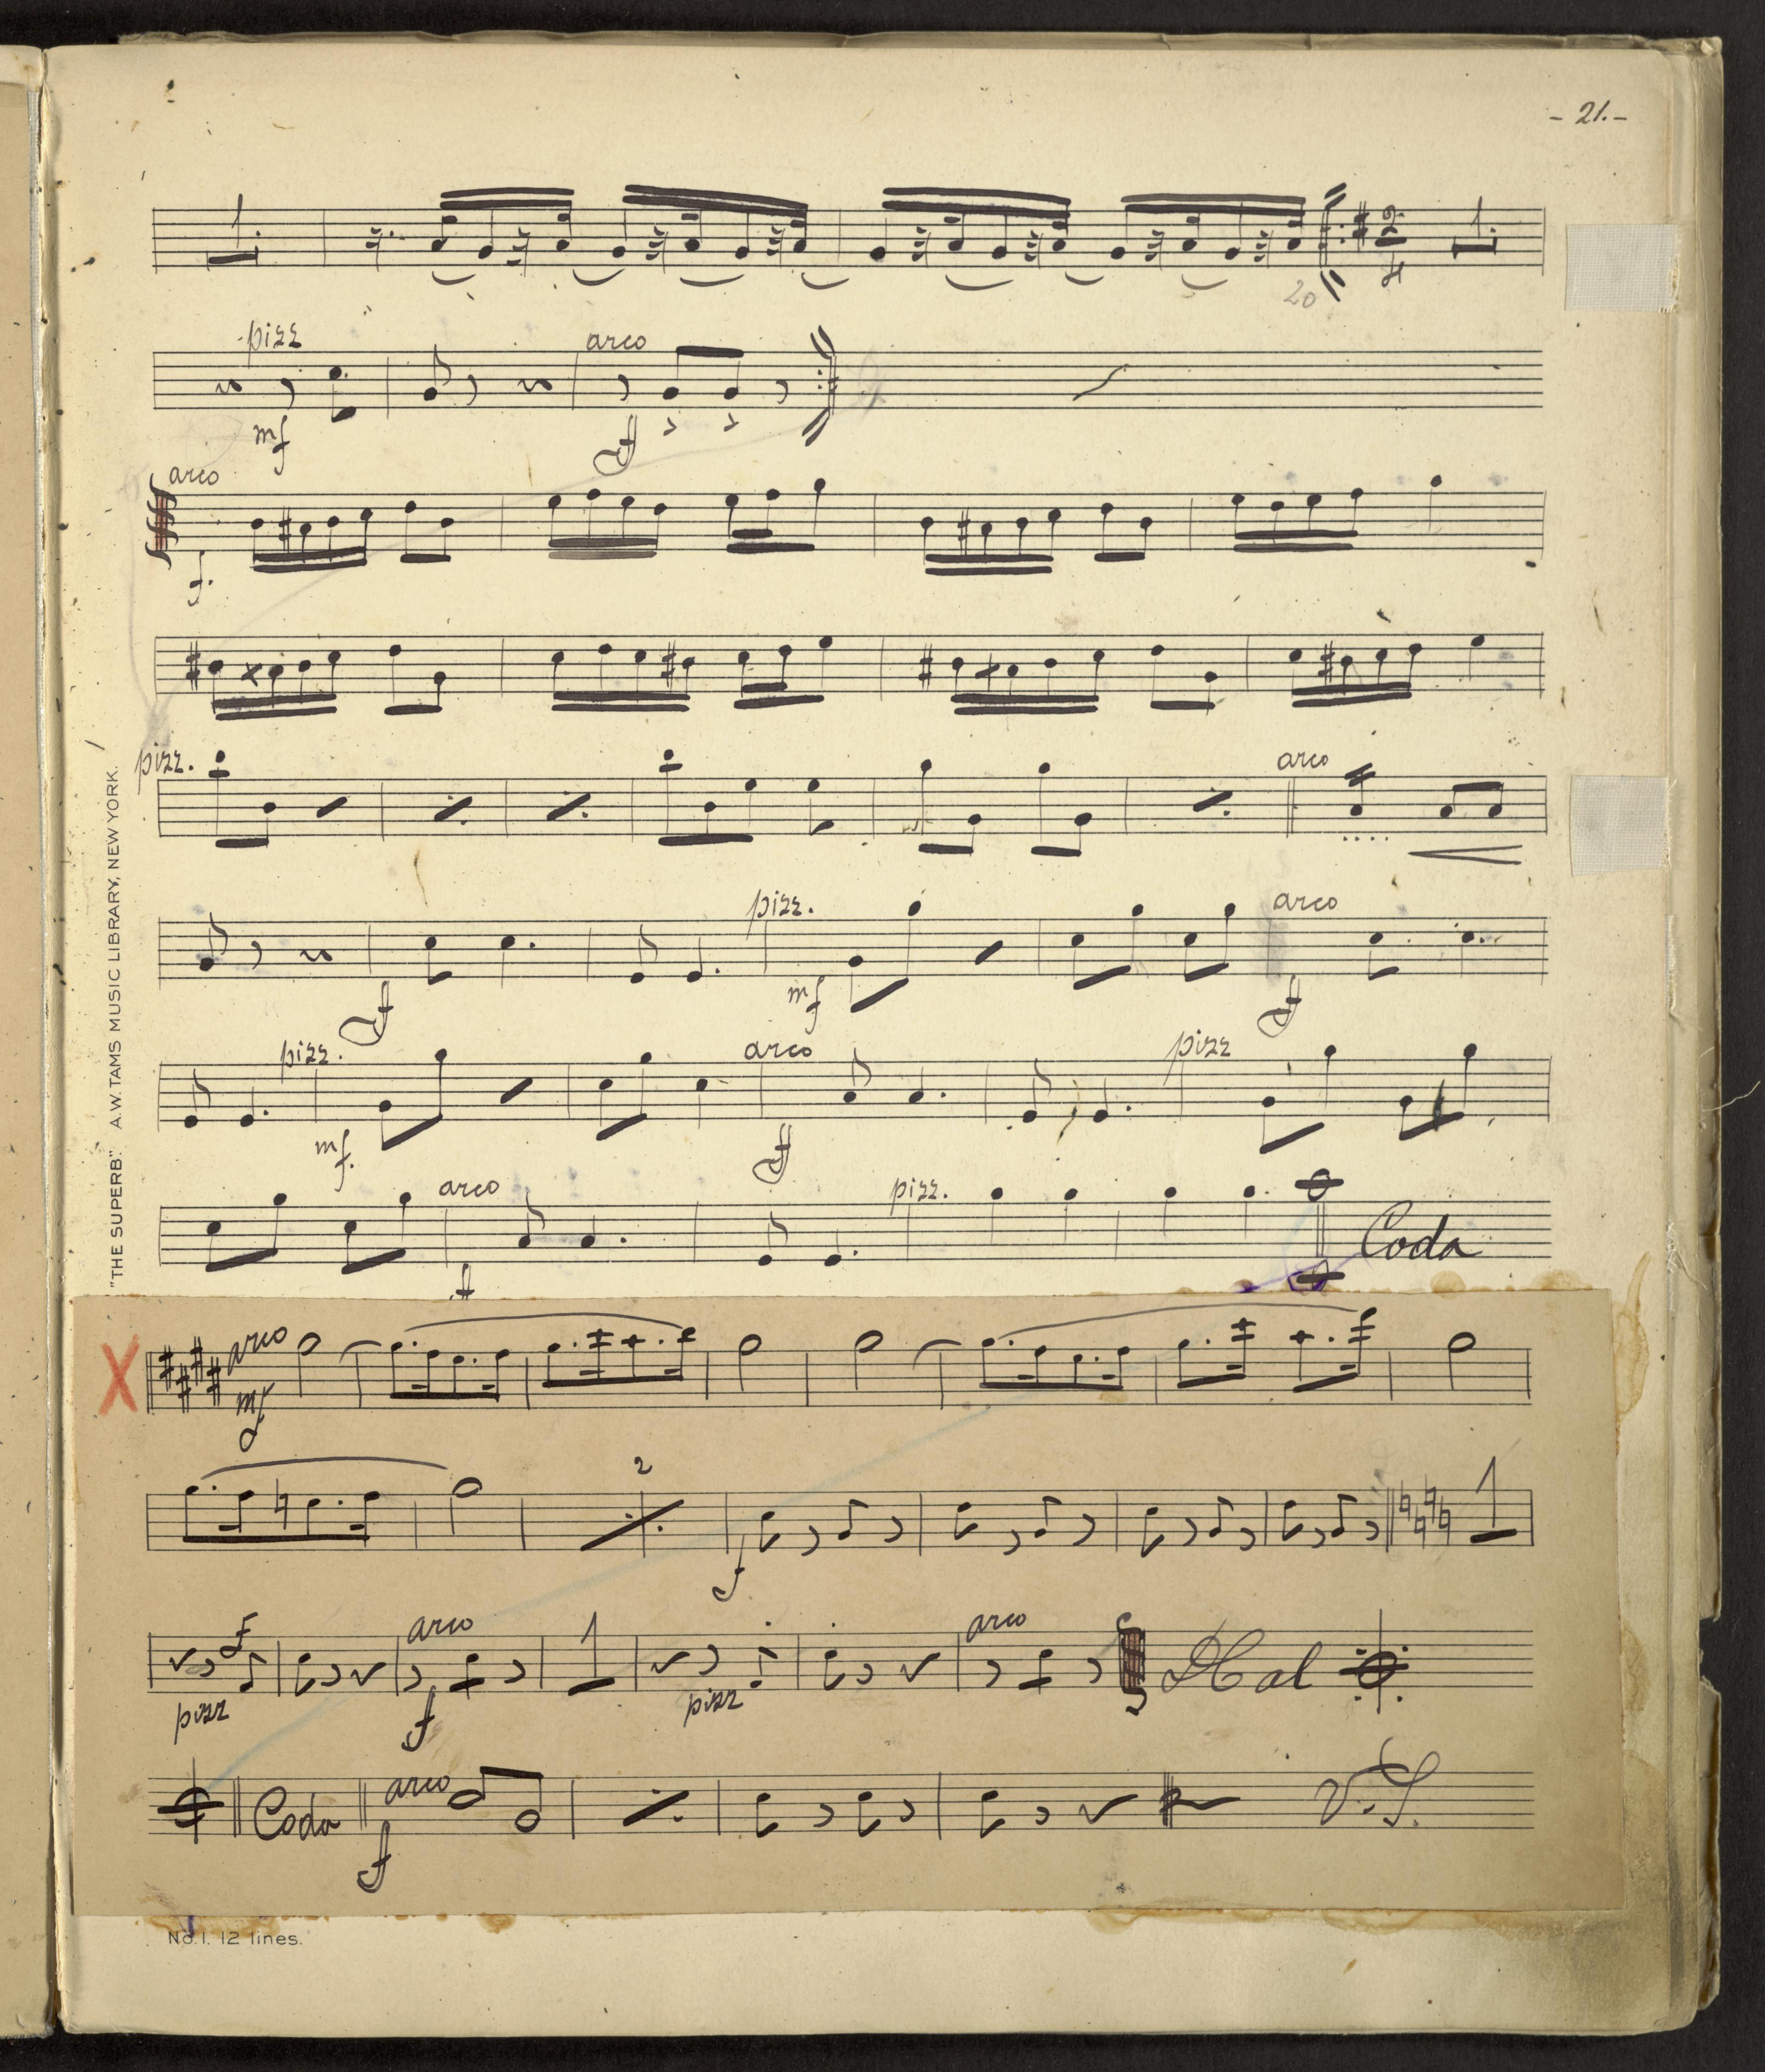 - 21. -
1
2
4
1
20
pizz
arco
mf
f
arco
f.
pizz.
arco
pizz.
arco
f
mf
f
pizz.
arco
pizz
mf.
f
arco
pizz.
Coda
f
"THE SUPERB". A.W. TAMS MUSIC LIBRARY, NEW YORK.
X
arco
mf
2
f
1
f
arco
1
arco
pizz
f
pizz
al
Coda
arco
f
V.S.
No. 1. 12 lines.